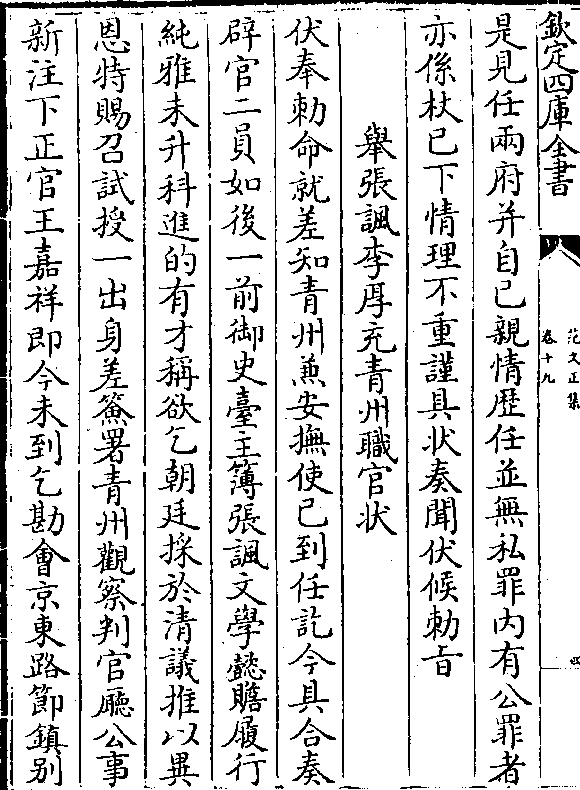 欽定四庫全書
范文正集
卷十九
四
是見任兩府并自己親情歷任並無私罪內有公罪者
亦係杖已下情理不重謹具狀奏聞伏候勅旨
舉張諷李厚充青州職官狀
伏奉勅命就差知青州兼安撫使已到任訖今具合奏
辟官二員如後一前御史臺主簿張諷文學懿贍履行
純雅未升科進的有才稱欲乞朝廷採於清議推以異
恩特賜召試授一出身差簽署青州觀察判官廳公事
新注下正官王嘉祥即今未到乞勘會京東路節鎮別